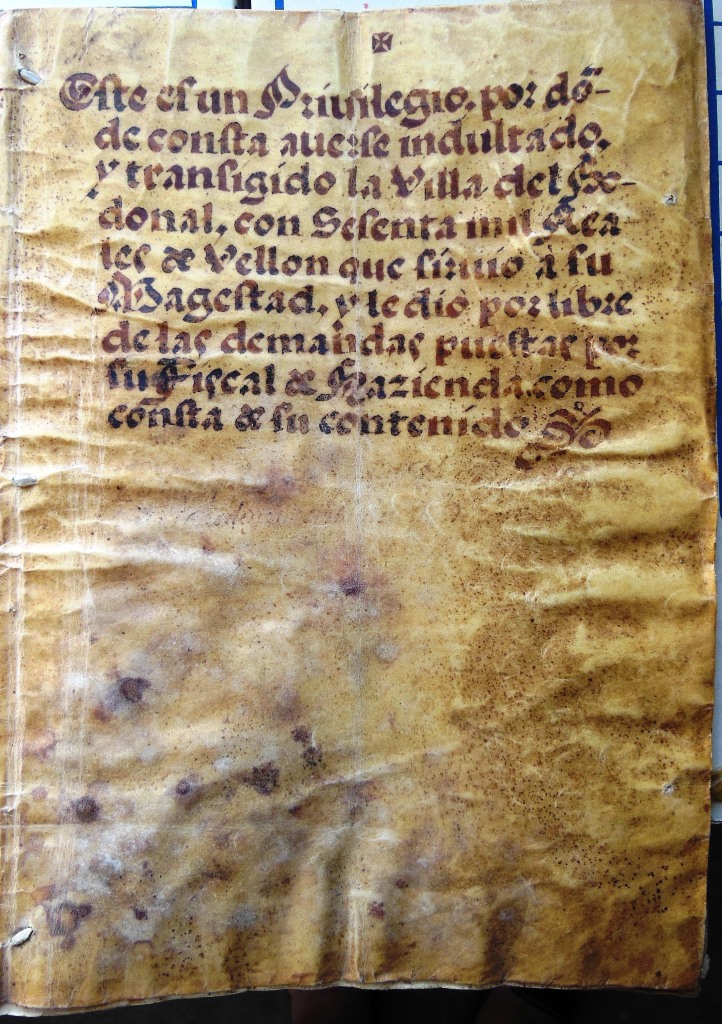 ✠
Este es un Priuilegio, por dō-
de consta auerse indultado,
y transigido la Villa del Ho-
donal, con Sesenta mil Rea-
les de Vellon que siruio à su
Magestad, y le dio por libre
de las demandas puestas por
su Fiscal de Hazienda como
consta de su contenido